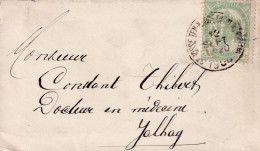 Monsieur
Constant Thibert
Docteur en médecine
Jalhay